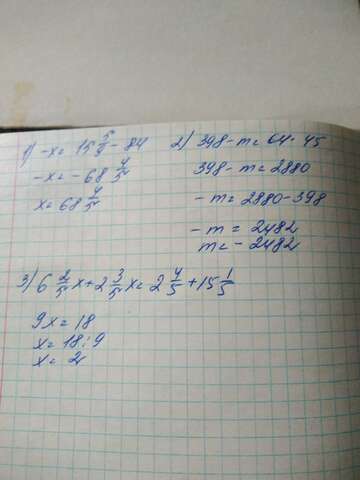 1) -x = 15 5/9 - 84
-x = -68 4/5
x = 68 4/5
2) 398 - m = 64 · 45
398 - m = 2880
-m = 2880 - 398
-m = 2482
m = -2482
3) 6 2/5 x + 2 3/5 x = 2 4/5 + 15 1/5
9x = 18
x = 18 : 9
x = 2